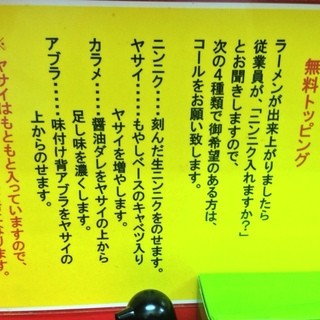 無料トッピング
ラーメンが出来上がりましたら
従業員が、「ニンニク入れますか?」
とお聞きしますので、
次の4種類で御希望のある方は、
コールをお願い致します。
ニンニク・・・・刻んだ生ニンニクをのせます。
ヤサイ・・・・・もやしベースのキャベツ入り
ヤサイを増やします。
カラメ・・・・・醤油ダレをヤサイの上から
足し味を濃くします。
アブラ・・・・・味付け背アブラをヤサイの
上からのせます。
※ヤサイはもともと入っていますので、
ります。